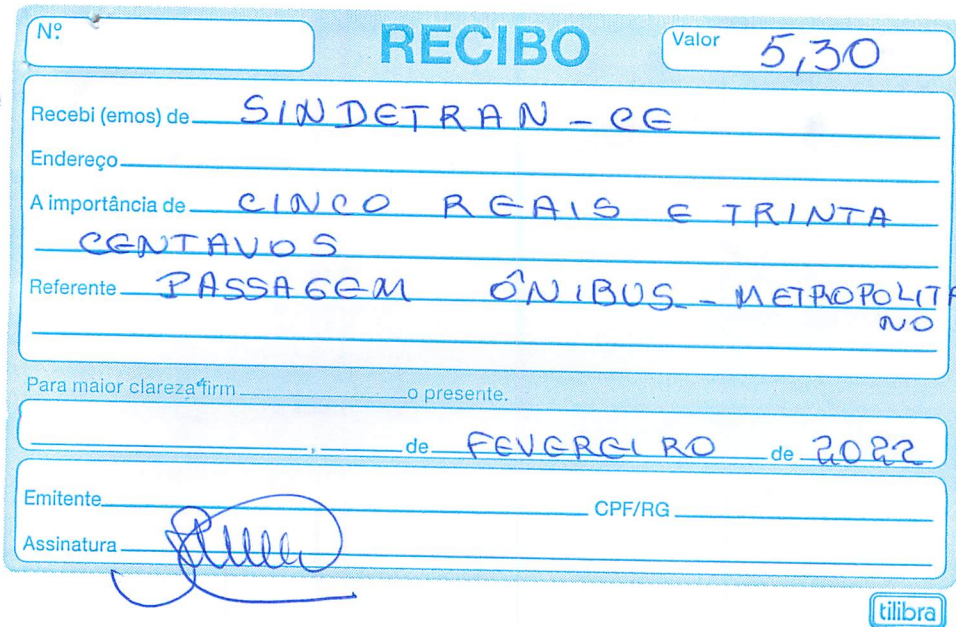 Nº RECIBO Valor 5,30
Recebi (emos) de SINDETRAN - CE
Endereço
A importância de CINCO REAIS E TRINTA
CENTAVOS
Referente PASSAGEM ÔNIBUS - METROPOLITA
NO
Para maior clareza firm o presente.
, de FEVEREIRO de 2022
Emitente CPF/RG
Assinatura
tilibra